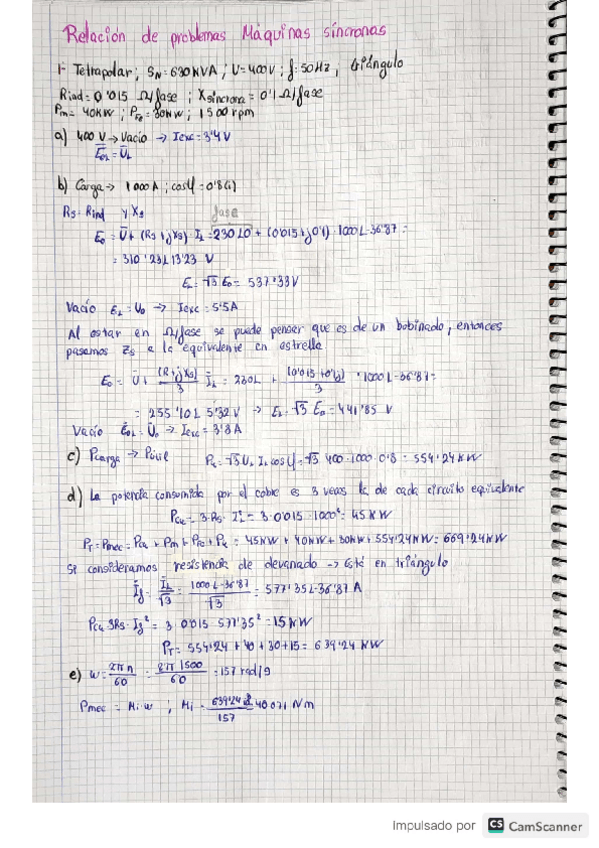 Relación de problemas Máquinas síncronas
1- Tetrapolar ; SN = 630 KVA ; U = 400 V ; f = 50 Hz , triángulo
Rind = 0'015 Ω/fase ; Xsíncrona = 0'1 Ω/fase
Pm = 40KW ; PFe = 30KW ; 1500 rpm
a) 400 V → Vacío → Iexc = 3'4 V
E0L = UL
b) Carga → 1000 A ; cosφ = 0'8 (i)
Rs = Rind y Xs fase
E0 = U + (Rs + jXs) · IL = 230 L0 + (0'015 + j0'1) · 1000 L-36'87 =
= 310'23 L 13'23 V
EL = √3 E0 = 537'33 V
Vacío EL = U0 → Iexc = 5'5A
Al estar en Ω/fase se puede pensar que es de un bobinado, entonces
pasamos Zs a la equivalente en estrella
E0 = U + (R+jXs)/3 · IL = 230 L + (0'015 + 0'1j)/3 · 1000 L-36'87 =
= 255'10 L 5'32 V → EL = √3 E0 = 441'85 V
Vacío E0L = U0 → Iexc = 3'8 A
c) Pcarga → Pútil Pu = √3 UL IL cosφ = √3 400 · 1000 · 0'8 = 554'24 KW
d) La potencia consumida por el cobre es 3 veces la de cada circuito equivalente
Pcu = 3 · Rs · IL² = 3 · 0'015 · 1000² = 45 KW
PT = Pmec = Pcu + Pm + PFe + Pu = 45KW + 40KW + 30KW + 554'24KW = 669'24KW
Si consideramos resistencia de devanado → Está en triángulo
If = IL/√3 = 1000 L-36'87/√3 = 577'35 L-36'87 A
Pcu = 3Rs · If² = 3 0'015 577'35² = 15 KW
PT = 554'24 + 40 + 30 + 15 = 639'24 KW
e) w = 2π n/60 = 2π 1500/60 = 157 rad/s
Pmec = Mi · w ; Mi = 639'24/157 = 40071 Nm
Impulsado por CS CamScanner